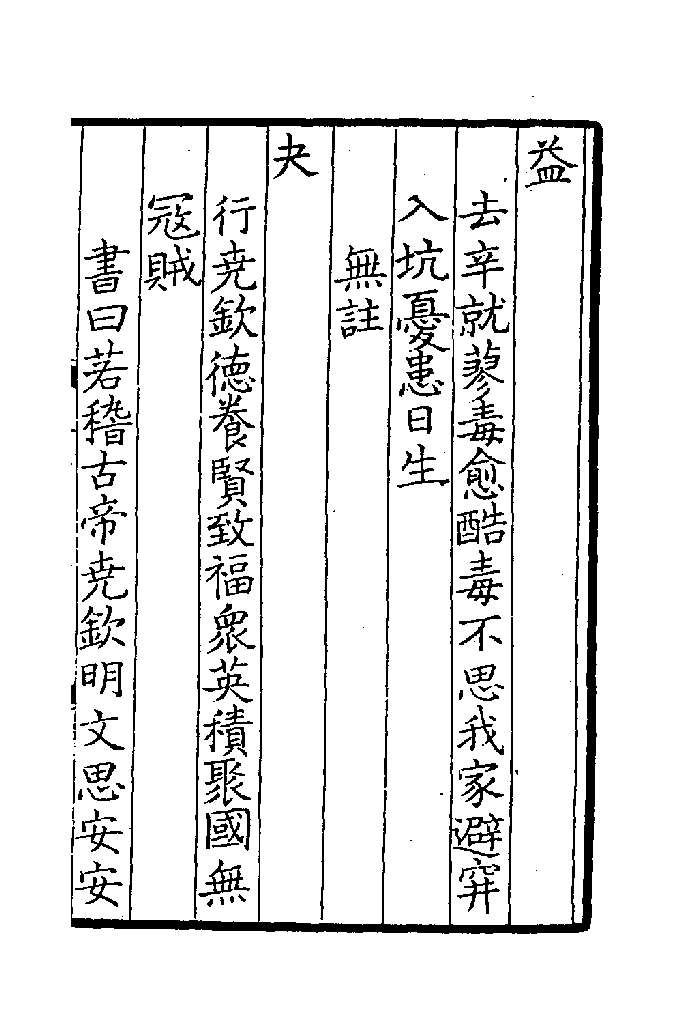 益
去辛就蓼毒愈酷毒不思我家避穽
入坑憂患日生
無註
夬
行尭欽徳養賢致福衆英積聚國無
冦賊
書曰若稽古帝尭欽明文思安安